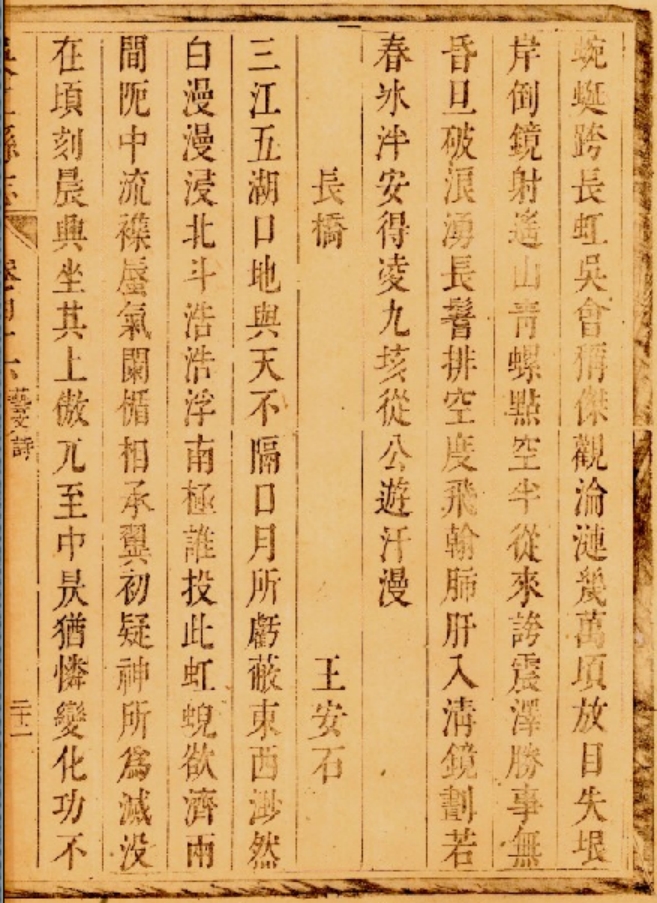 蜿蜒跨長虹吳會稱傑觀淪漣幾萬頃放目失垠
岸倒鏡射遙山靑螺點空半從來誇震澤勝事無
昏旦破浪湧長鬐排空度飛翰肺肝入淸鏡劃若
春氷泮安得凌九垓從公遊汗漫
長橋 王安石
三江五湖口地與天不隔日月所虧蔽東西渺然
白漫漫浸北斗浩浩浮南極誰投此虹蜺欲濟兩
間阨中流襍蜃氣闌楯相承翼初疑神所爲滅没
在頃刻晨興坐其上傲兀至中昃猶憐變化功不
吳江縣志 卷四十 藝文詩 二十一